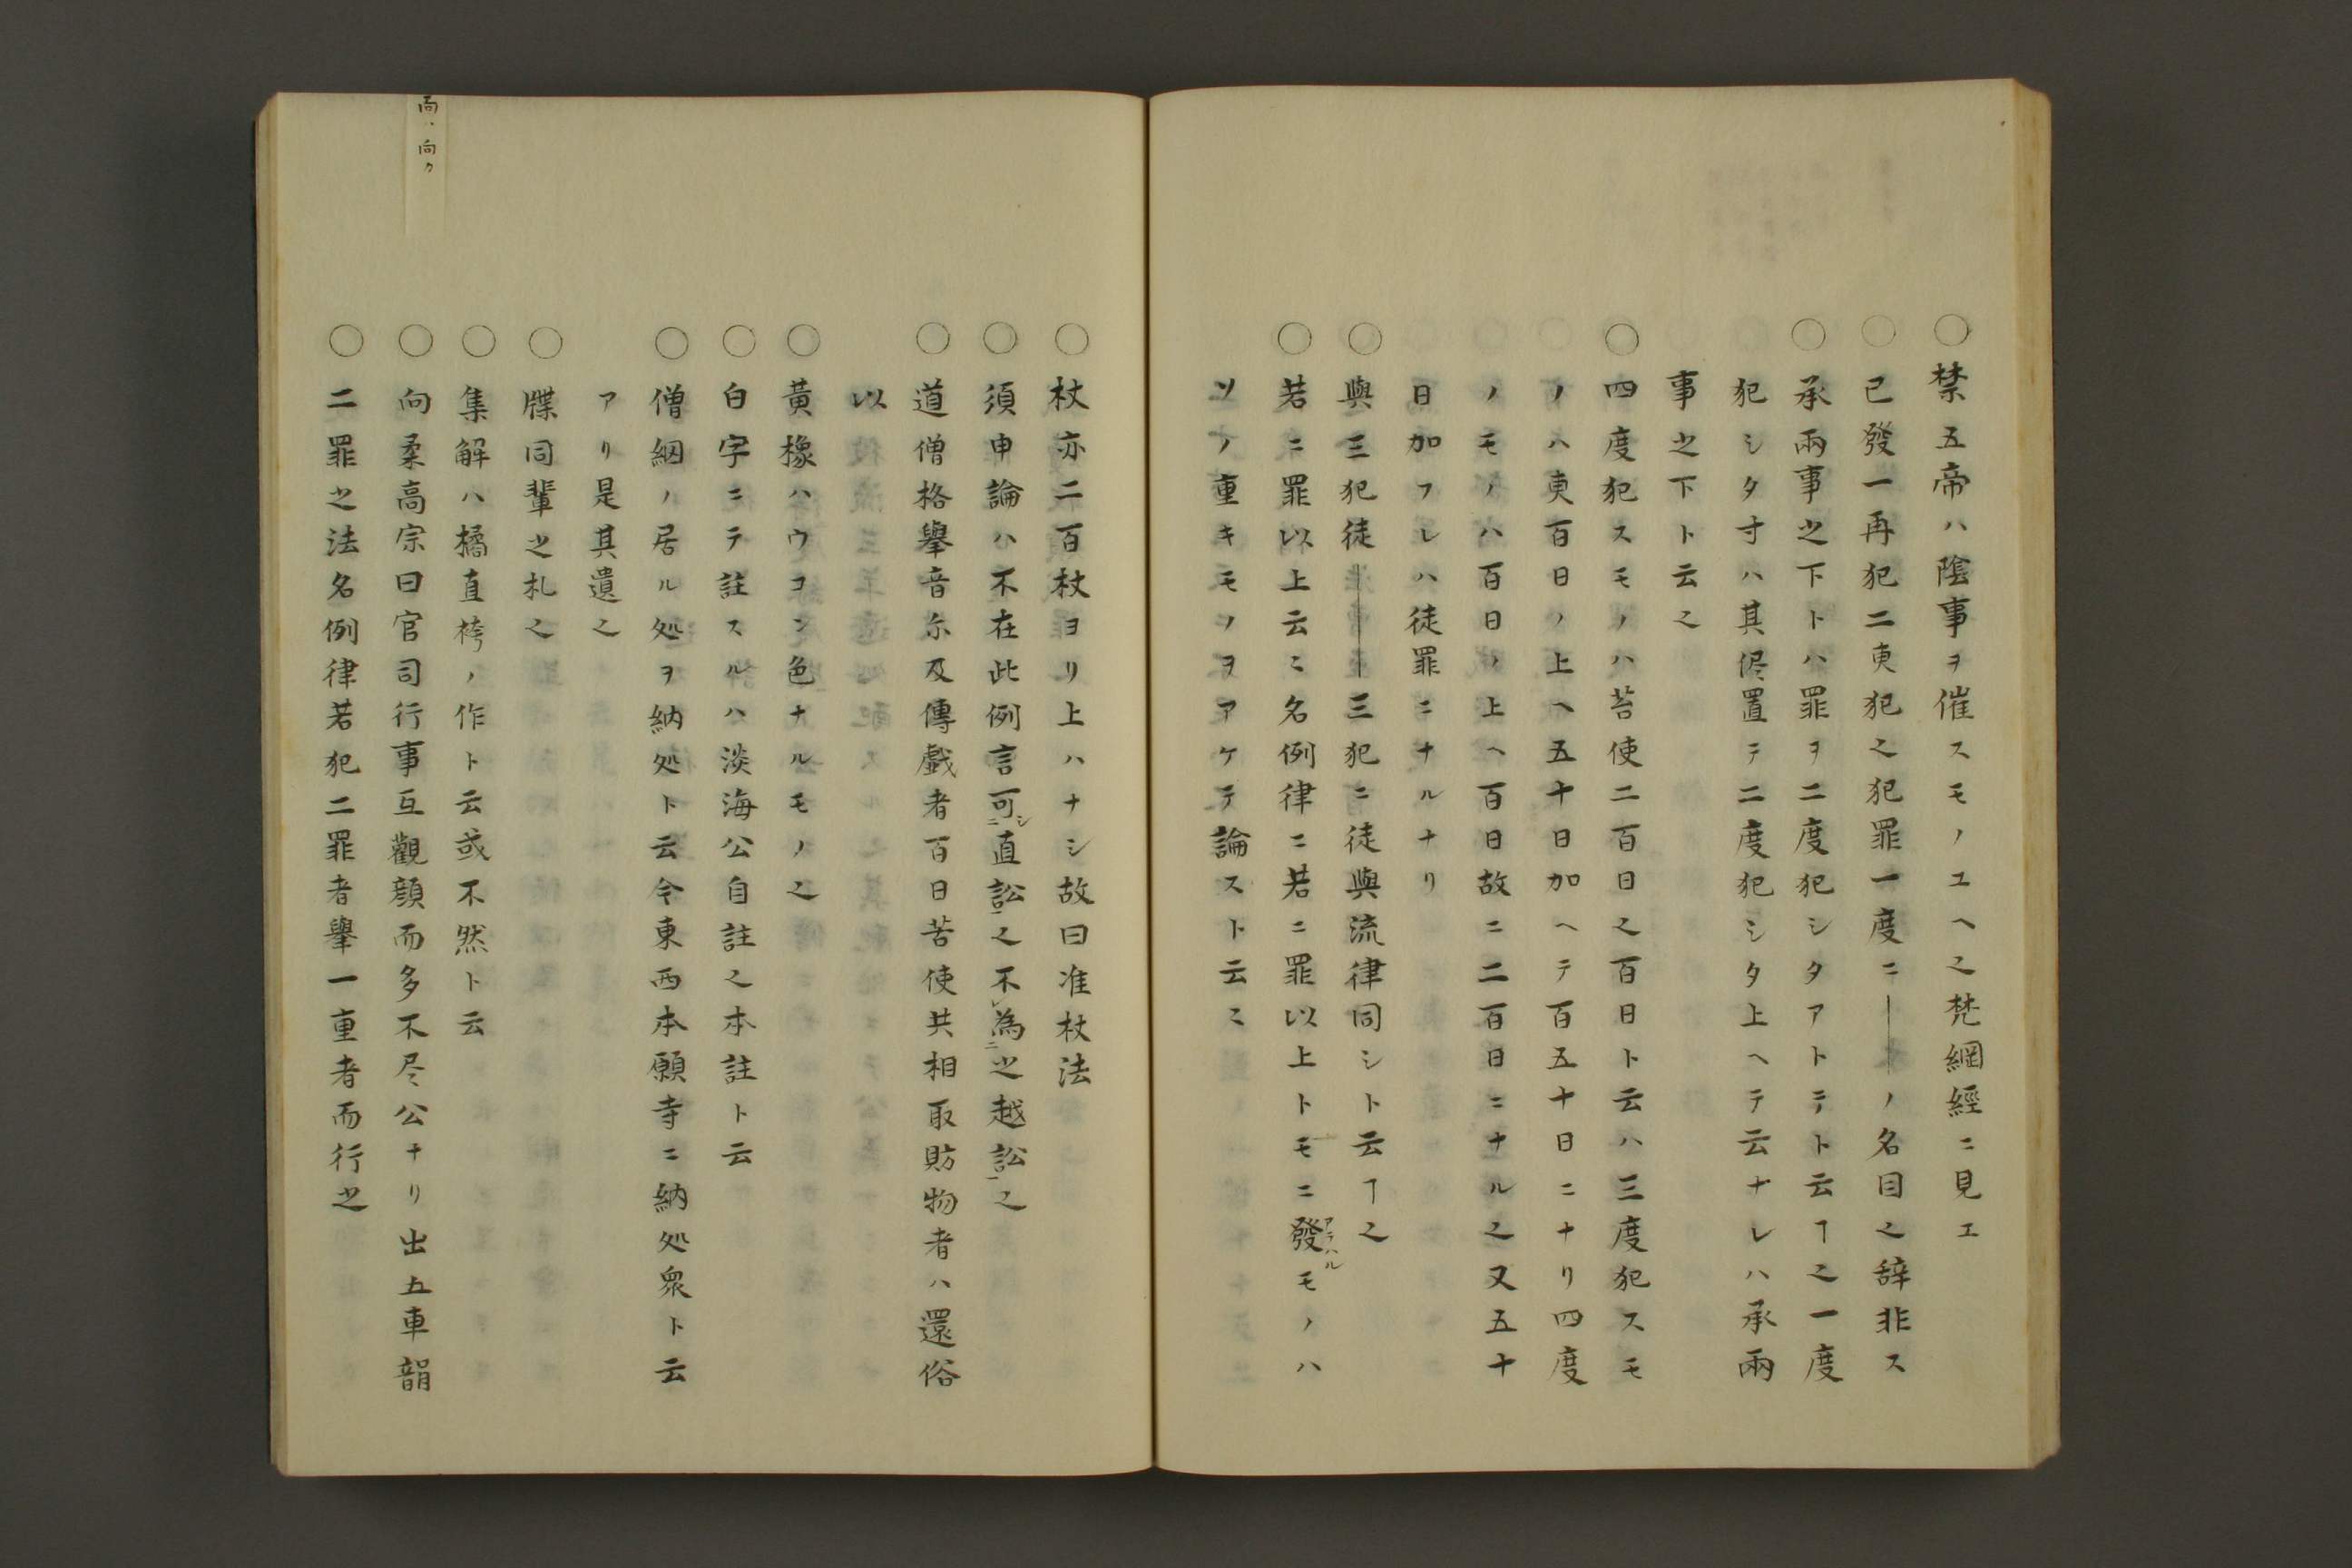 ○禁五帝ハ陰事ヲ催スモノユヘ之梵網經ニ見エ
○已發一再犯二更犯之犯罪一度ニ――ノ名目之辞非ス
○承兩事之下トハ罪ヲ二度犯シタアトテト云ヿ之一度
犯シタ寸ハ其侭置テ二度犯シタ上ヘテ云ナレハ承兩
事之下ト云之
○四度犯スモノハ苔使二百日之百日ト云ハ三度犯スモ
ノハ更百日ノ上ヘ五十日加ヘテ百五十日ニナリ四度
ノモノハ百日ノ上ヘ百日故ニ二百日ニナル之又五十
日加フレハ徒罪ニナルナリ
○與三犯徒――三犯ニ徒與流律同シト云ヿ之
○若ニ罪以上云〻名例律ニ若ニ罪以上トモニ發アラハルモノハ
ソノ重キモノヲアケテ論スト云〻
○杖亦二百杖ヨリ上ハナシ故曰准杖法
○須申論ハ不在此例言可シニ直訟一之不レ為ニ之越訟一之
○道僧格擧音尓及傳戯者百日苦使共相取財物者ハ還俗
以
○黃橡ハウヨン色ナルモノ之
○白字ニテ註スルハ淡海公自註之本註ト云
○僧綱ノ居ル処ヲ納処ト云今東西本願寺ニ納処衆ト云
アリ是其遺之
○牒同輩之札之
○集解ハ橘直袴ノ作ト云或不然ト云
○向柔高宗曰官司行事互觀顔而多不尽公ナリ出五車韻
○二罪之法名例律若犯二罪者擧一重者而行之
向カ